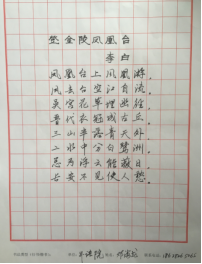 登金陵凤凰台
李白
凤凰台上凤凰游
凤去台空江自流
吴宫花草埋幽径
晋代衣冠成古丘
三山半落青天外
二水中分白鹭洲
总为浮云能蔽日
长安不见使人愁